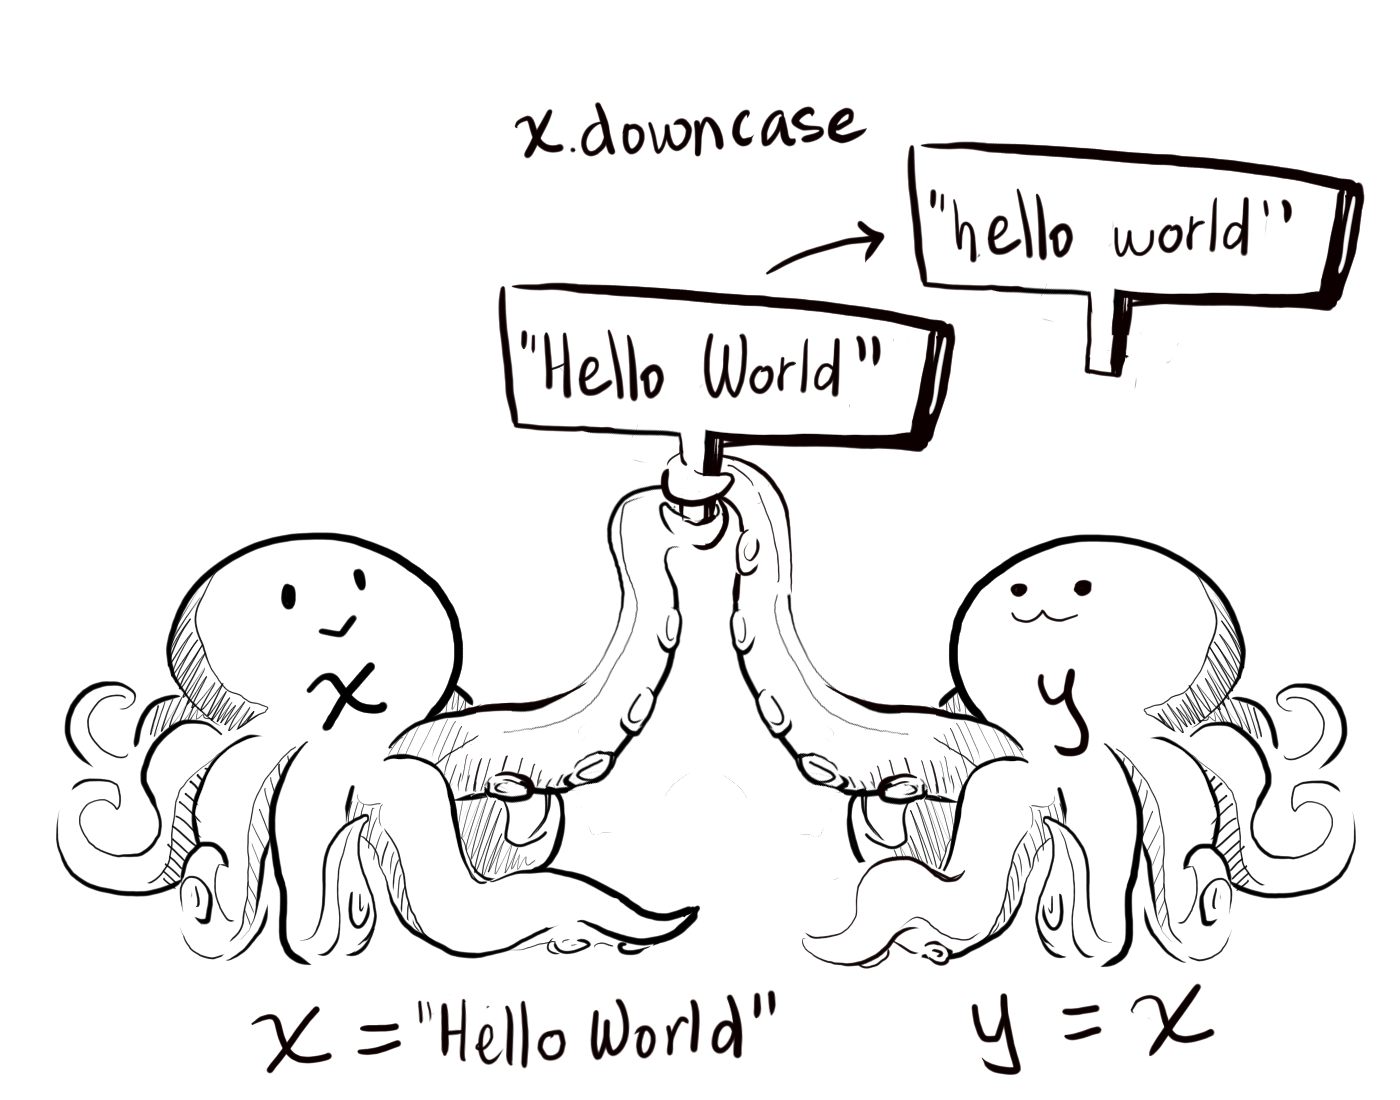 x.downcase
"hello world"
"Hello World"
x
y
x = "Hello World"
y = x